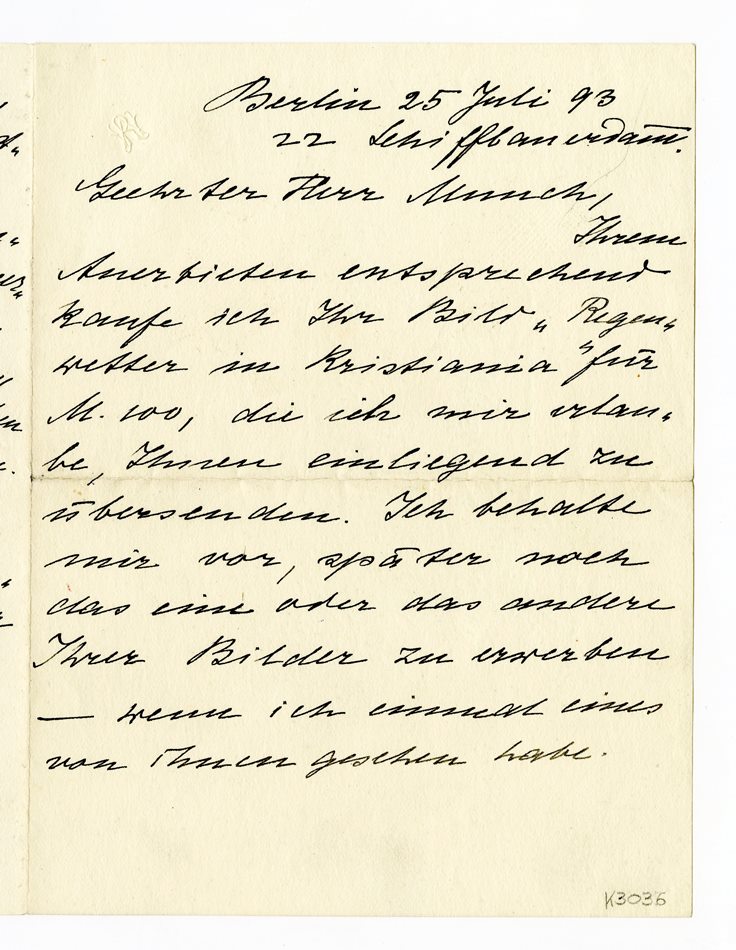 Berlin 25 Juli 93
22 Schiffbauerdam̅.
Geehrter Herr Munch,
Ihrem
Anerbieten entsprechend
kaufe ich Ihr Bild „Regen„
wetter in Kristiania" für
M. 100, die ich mir erlau„
be, Ihnen einliegend zu
übersenden. Ich behalte
mir vor, später noch
das eine oder das andere
Ihrer Bilder zu erwerben
— wenn ich einmal eines
von ihnen gesehen habe.
K3036